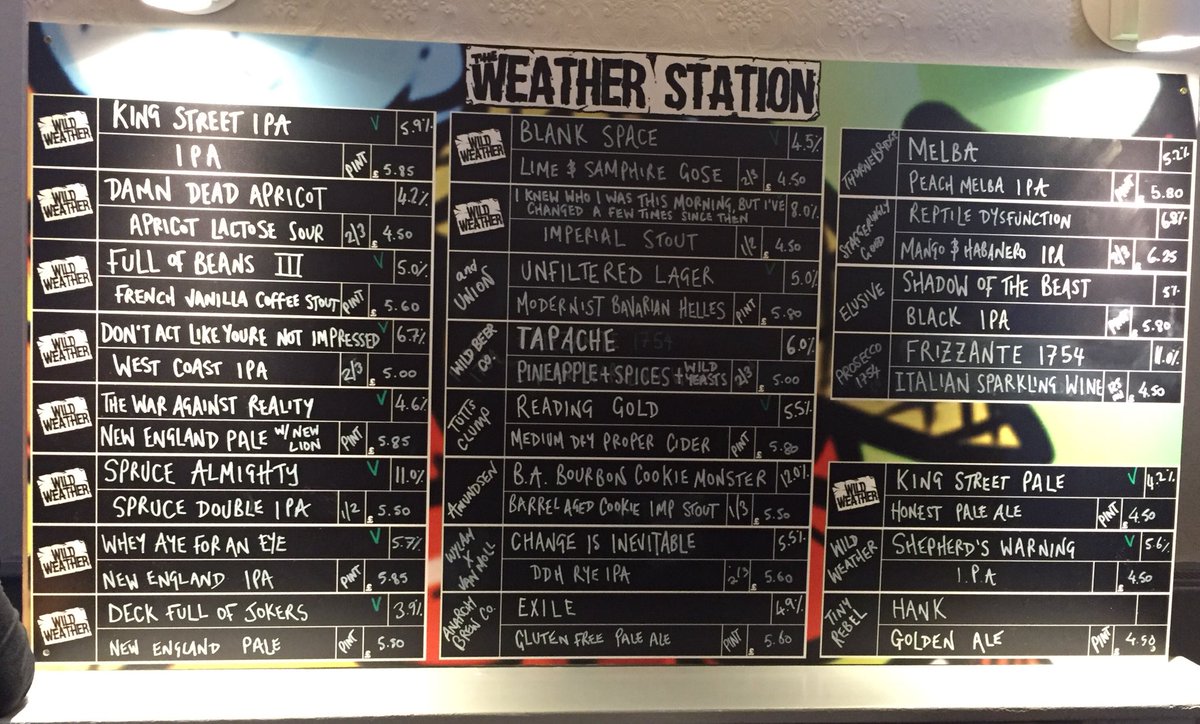 THE WEATHER STATION
WILD WEATHER
KING STREET IPA 5.9%
IPA PINT £5.85
WILD WEATHER
DAMN DEAD APRICOT 4.2%
APRICOT LACTOSE SOUR 2/3 £4.50
WILD WEATHER
FULL OF BEANS III 5.0%
FRENCH VANILLA COFFEE STOUT PINT £5.60
WILD WEATHER
DON'T ACT LIKE YOURE NOT IMPRESSED 6.7%
WEST COAST IPA 2/3 £5.00
WILD WEATHER
THE WAR AGAINST REALITY 4.6%
NEW ENGLAND PALE W/ NEW LION PINT £5.85
WILD WEATHER
SPRUCE ALMIGHTY 11.0%
SPRUCE DOUBLE IPA 1/2 £5.50
WILD WEATHER
WHEY AYE FOR AN EYE 5.7%
NEW ENGLAND IPA PINT £5.85
WILD WEATHER
DECK FULL OF JOKERS 3.9%
NEW ENGLAND PALE PINT £5.50
WILD WEATHER
BLANK SPACE 4.5%
LIME & SAMPHIRE GOSE 2/3 £4.50
WILD WEATHER
I KNEW WHO I WAS THIS MORNING, BUT I'VE
CHANGED A FEW TIMES SINCE THEN 8.0%
IMPERIAL STOUT 1/2 £4.50
and UNION
UNFILTERED LAGER 5.0%
MODERNIST BAVARIAN HELLES PINT £5.80
WILD BEER CO.
TAPACHE 1754 6.0%
PINEAPPLE + SPICES + WILD YEASTS 2/3 £5.00
TUTTS CLUMP
READING GOLD 5.5%
MEDIUM DRY PROPER CIDER PINT £5.80
AMUNDSEN
B.A. BOURBON COOKIE MONSTER 12.0%
BARREL AGED COOKIE IMP STOUT 1/3 £5.50
WYLAM X VAN MOLL
CHANGE IS INEVITABLE 5.5%
DDH RYE IPA 2/3 £5.60
ANARCHY BREW CO.
EXILE 4.9%
GLUTEN FREE PALE ALE PINT £5.60
MELBA 5.2%
PEACH MELBA IPA PINT £5.80
STAGGERINGLY GOOD
REPTILE DYSFUNCTION 6.8%
MANGO & HABANERO IPA 2/3 £6.25
ELUSIVE
SHADOW OF THE BEAST 5%
BLACK IPA PINT £5.80
PROSECCO 1754
FRIZZANTE 1754 11.0%
ITALIAN SPARKLING WINE £4.50
WILD WEATHER
KING STREET PALE 4.2%
HONEST PALE ALE PINT £4.50
WILD WEATHER
SHEPHERD'S WARNING 5.6%
I.P.A £4.50
TINY REBEL
HANK
GOLDEN ALE PINT £4.50